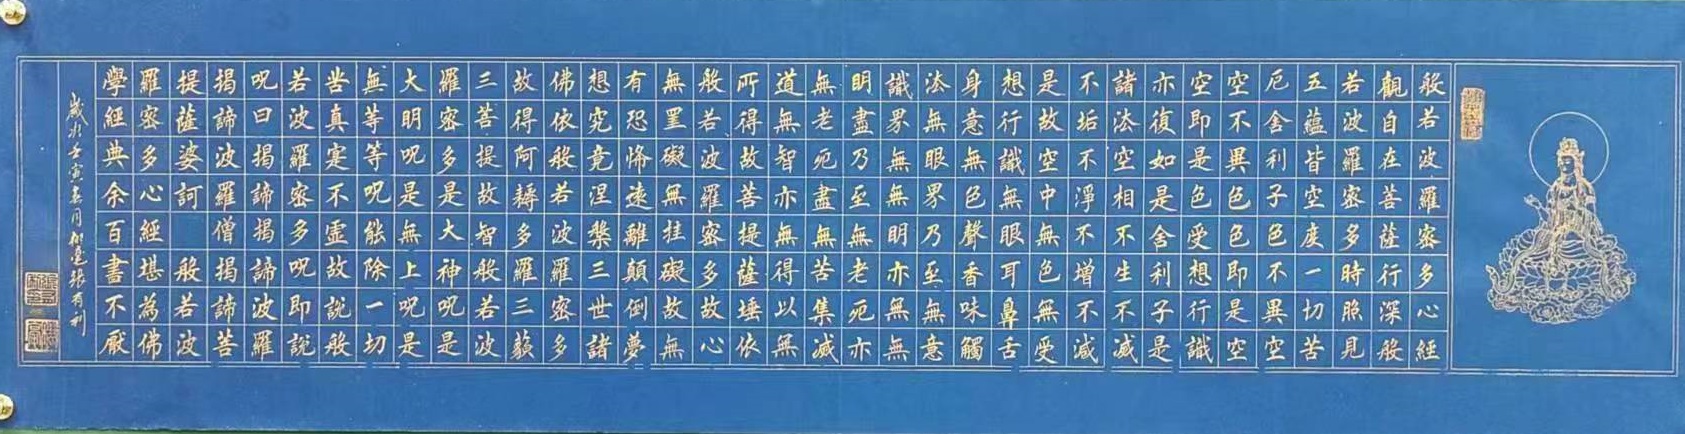 般若波羅密多心經
觀自在菩薩行深般
若波羅密多時照見
五蘊皆空度一切苦
厄舍利子色不異空
空不異色色即是空
空即是色受想行識
亦復如是舍利子是
諸法空相不生不滅
不垢不淨不增不減
是故空中無色無受
想行識無眼耳鼻舌
身意無色聲香味觸
法無眼界乃至無意
識界無無明亦無無
明盡乃至無老死亦
無老死盡無苦集滅
道無智亦無得以無
所得故菩提薩埵依
般若波羅密多故心
無罣礙無挂礙故無
有恐怖遠離顛倒夢
想究竟涅槃三世諸
佛依般若波羅密多
故得阿耨多羅三藐
三菩提故智般若波
羅密多是大神呪是
大明呪是無上呪是
無等等呪能除一切
苦真寔不虛故說般
若波羅密多呪即說
呪曰揭諦揭諦波羅
揭諦波羅僧揭諦菩
提薩婆訶 般若波
羅密多心經堪為佛
學經典余百書不厭
歲次壬寅 月 張有利